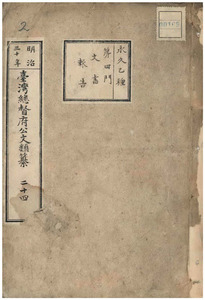 永久乙種
第四門
文書
報告
明治
三十年
臺灣總督府公文類纂
二十四
2